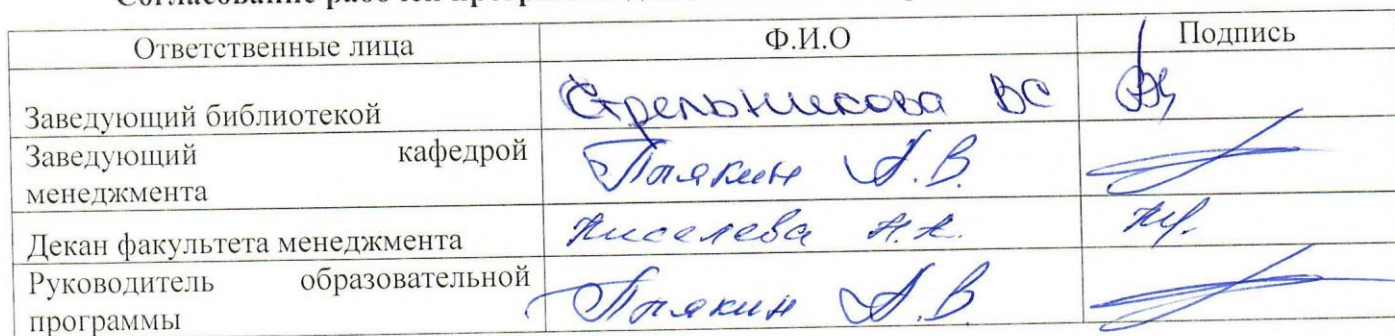 Согласование рабочей программы
Ответственные лица Ф.И.О Подпись
Заведующий библиотекой Стрельникова ВС
Заведующий кафедрой
менеджмента
А.В.
Декан факультета менеджмента Киселева Н.Н.
Руководитель образовательной
программы
А.В